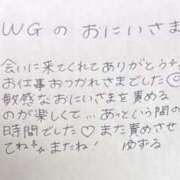 WGのおにいさま
会いに来てくれてありがとう
お仕事おつかれさまでした☺
敏感なおにいさまを責める
のが楽しくて…あっという間の
時間でした♡また責めさせ
てね またね! ゆずる